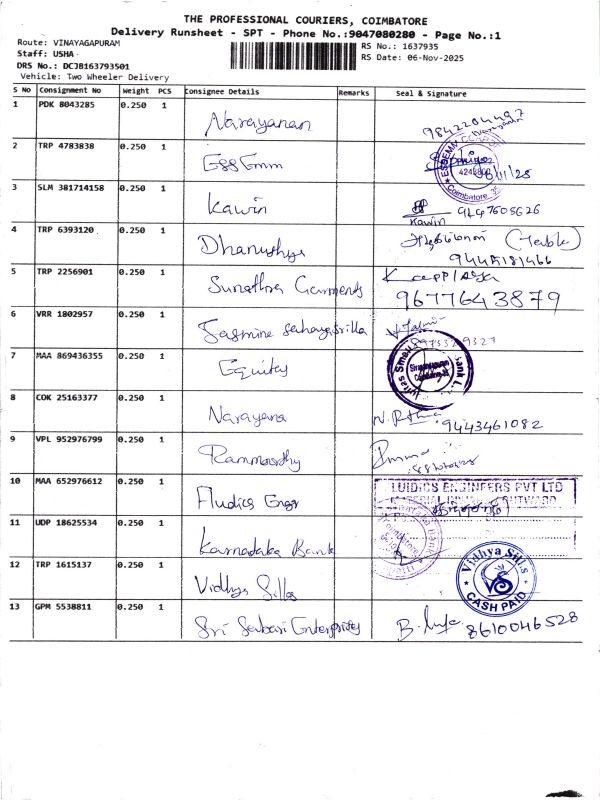 THE PROFESSIONAL COURIERS, COIMBATORE
Delivery Runsheet - SPT - Phone No.:9047080280 - Page No.:1
Route: VINAYAGAPURAM
RS No.: 1637935
Staff: USHA
RS Date: 06-Nov-2025
DRS No.: DCJB163793501
Vehicle: Two Wheeler Delivery
S No Consignment No Weight PCS Consignee Details Remarks Seal & Signature
1 PDK 8043285 0.250 1 Narayanan 9842204497
2 TRP 4783838 0.250 1 ESSEmm
Coimbatore
3 SLM 381714158 0.250 1 Kawin 9147605626
Kawin
4 TRP 6393120 0.250 1 Dhanushya
5 TRP 2256901 0.250 1 Sunathra Garments
9677643879
6 VRR 1802957 0.250 1 Jasmine
7 MAA 869436355 0.250 1 Equitas
8 COK 25163377 0.250 1 Narayana 9443461082
9 VPL 952976799 0.250 1 Rammoorthy
10 MAA 652976612 0.250 1 Fludics Engr LUIDICS ENGINEERS PVT LTD
11 UDP 18625534 0.250 1 Karnadaka Bank
12 TRP 1615137 0.250 1 Vidhya Silks Vidhya Silks
VS
CASH PAID
13 GPM 5538811 0.250 1 Sri Sabari Enterprises 8610046528